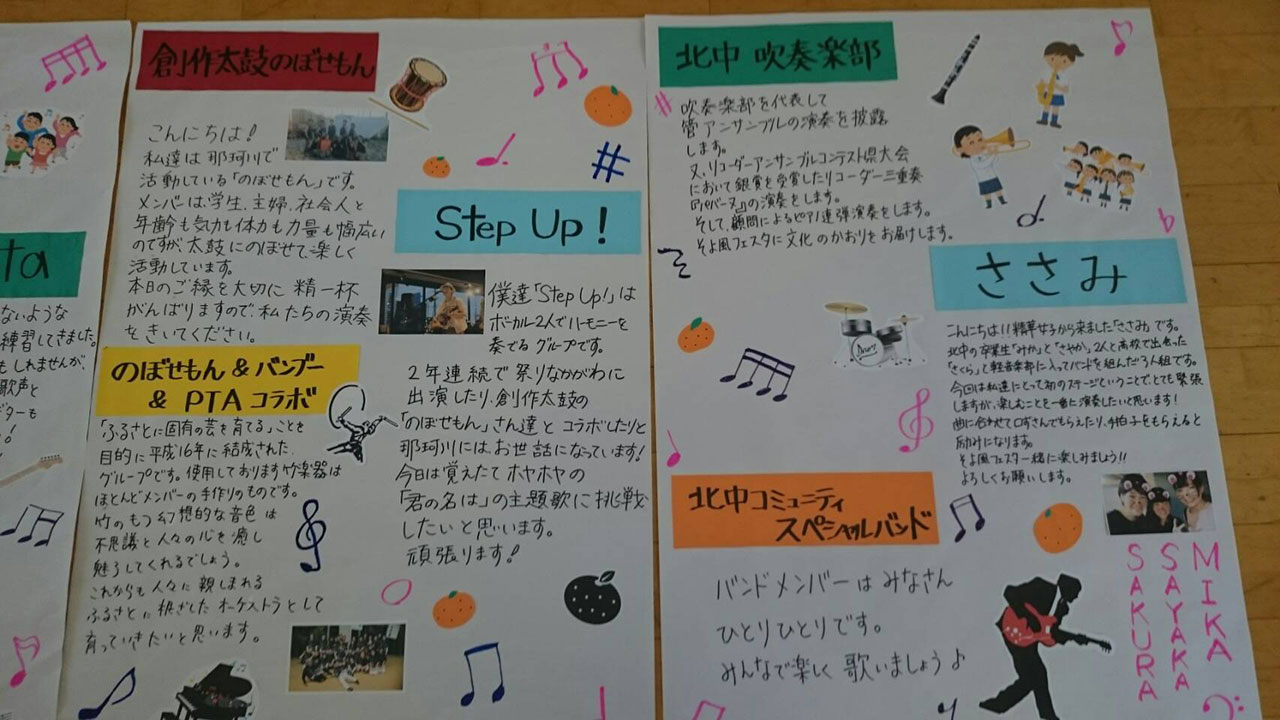 ta
ないような
練習してきました。
もしれませんが、
歌声と
ギターも
!
創作太鼓のぼせもん
こんにちは!
私達は那珂川で
活動している「のぼせもん」です。
メンバーは、学生、主婦、社会人と
年齢も気力も体力も力量も幅広い
のですが太鼓にのぼせて、楽しく
活動しています。
本日のご縁を大切に 精一杯
がんばりますので、私たちの演奏
をきいてください。
のぼせもん & バンブー
& PTA コラボ
「ふるさとに固有の芸を育てる」ことを
目的に平成16年に結成された
グループです。使用しております竹楽器は
ほとんどメンバーの手作りのものです。
竹のもつ幻想的な音色は
不思議と人々の心を癒し
魅了してくれるでしょう。
これからも人々に親しまれる
ふるさとに根ざした オーケストラとして
育っていきたいと思います。
Step Up!
僕達「Step Up!」は
ボーカル2人でハーモニーを
奏でるグループです。
2年連続で祭りなかがわに
出演したり、創作太鼓の
「のぼせもん」さん達とコラボしたりと
那珂川にはお世話になっています!
今日は覚えたてホヤホヤの
「君の名は」の主題歌に挑戦
したいと思います。
頑張ります!
北中 吹奏楽部
吹奏楽部を代表して
管アンサンブルの演奏を披露
します。
又、リコーダーアンサンブルコンテスト県大会
において銀賞を受賞したリコーダー三重奏
『パバーヌ』の演奏をします。
そして、顧問によるピアノ連弾演奏をします。
そよ風フェスタに文化のかおりをお届けします。
ささみ
こんにちは!!精華女子から来ました「ささみ」です。
北中の卒業生「みか」と「さやか」2人と高校で出会った
「さくら」と軽音楽部に入ってバンドを組んだ3人組です。
今回は私達にとって初のステージということでとても緊張
しますが、楽しむことを一番に演奏したいと思います!
曲に合わせて口ずさんでもらえたり、手拍子をもらえると
励みになります。
そよ風フェスタ一緒に楽しみましょう!!
よろしくお願いします。
MIKA
SAYAKA
SAKURA
北中コミュニティ
スペシャルバンド
バンドメンバーは みなさん
ひとりひとりです。
みんなで楽しく 歌いましょう♪